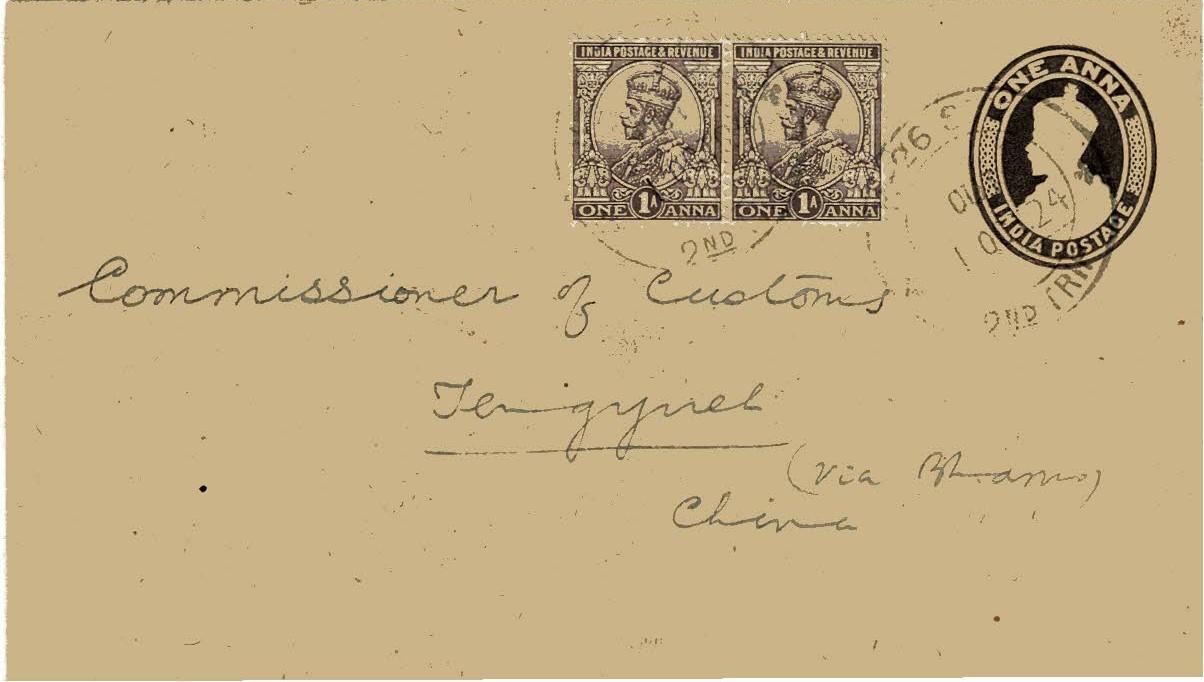 INDIA POSTAGE & REVENUE
ONE 1A ANNA
INDIA POSTAGE & REVENUE
ONE 1A ANNA
ONE ANNA
INDIA POSTAGE
26 S
24
2ND
2ND TRIP
Commissioner of Customs
Tengyueh
(via Bhamo)
China